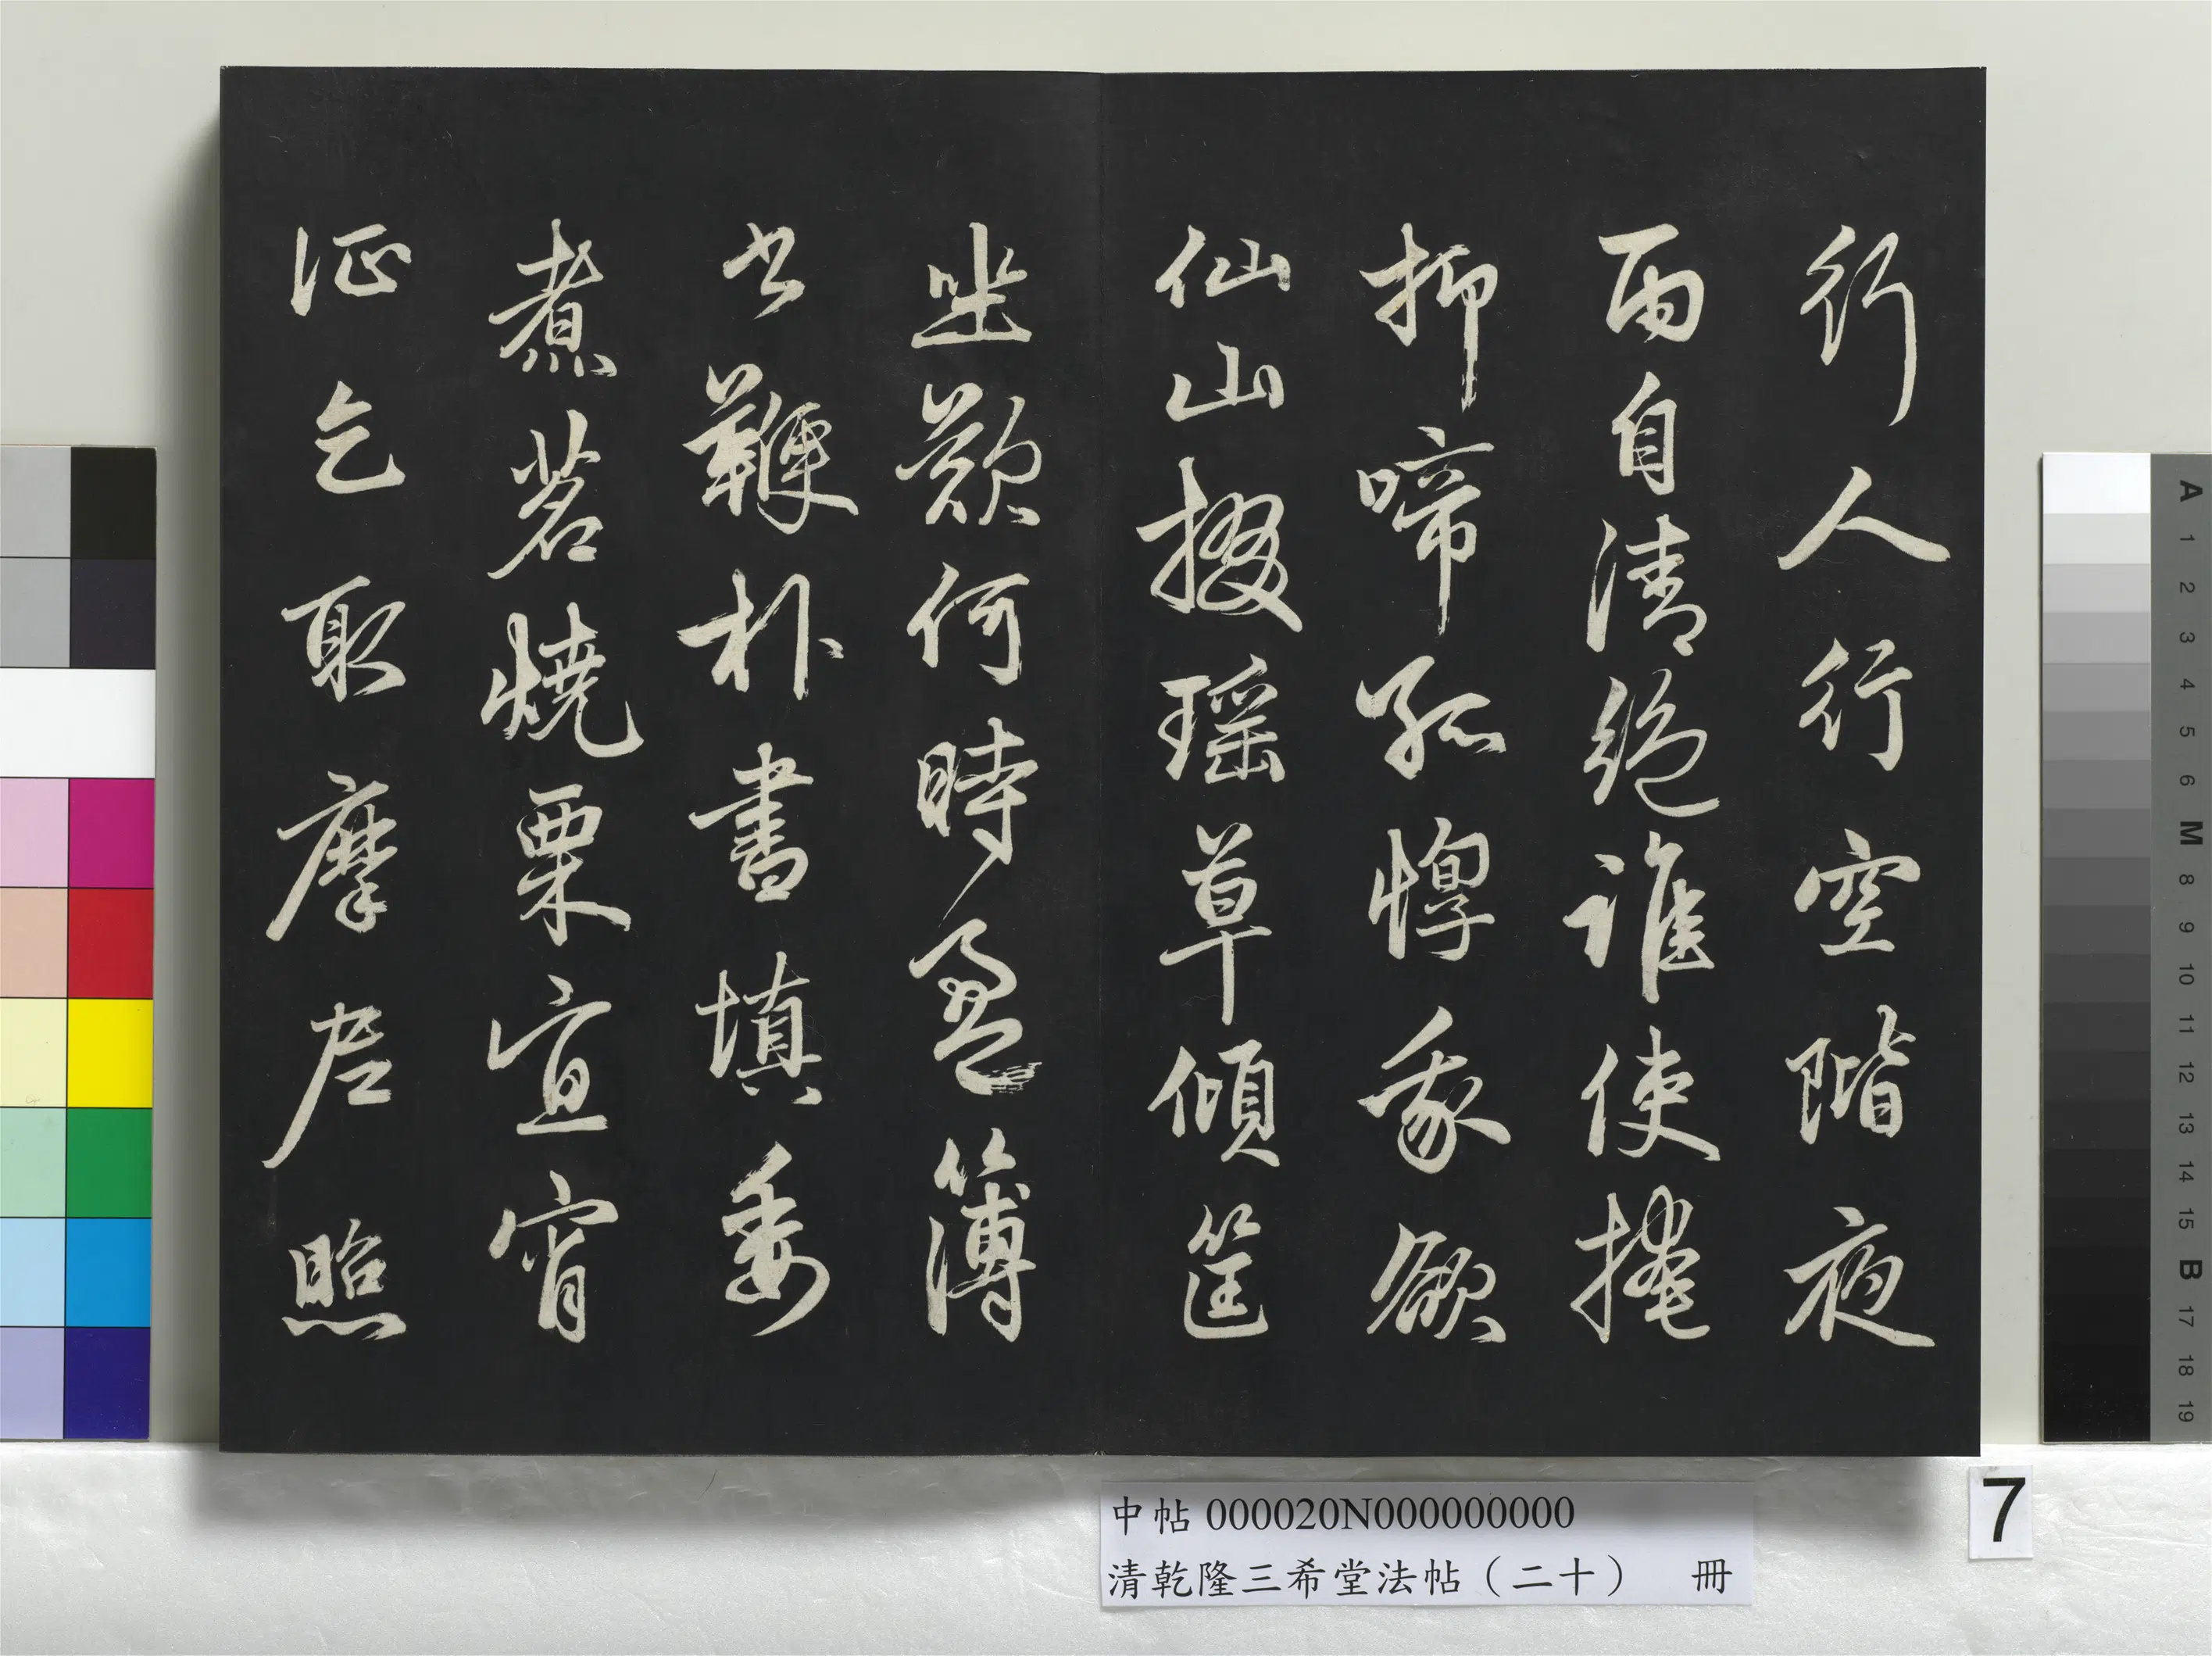 行人行空階夜
雨自清絕誰使掩
抑啼孤惸我欲
仙山掇瑤草傾筐
坐歎何時盈簿
書鞭朴晝填委
煮茗燒栗宜宵
征乞取摩尼照
中帖 000020N000000000
清乾隆三希堂法帖（二十） 冊
7
A 1 2 3 4 5 6 M 8 9 10 11 12 13 14 15 B 17 18 19